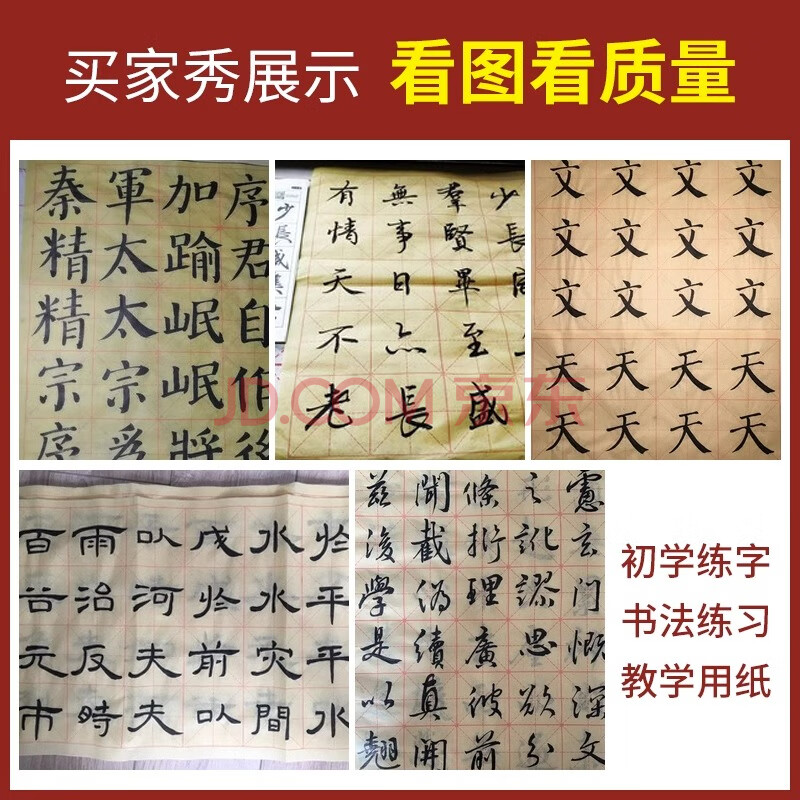 买家秀展示 看图看质量
序君自作後
加踰岷岷將
軍太太宗爲
秦精精宗序
少長
羣賢畢至盛
無事日亦長
有情天不老
少長咸集
文文文天天
文文文天天
文文文天天
文文文天天
JD.COM 京东
於平平水
水水灾間
戊於前以
以河夫夫
雨治反時
百谷元市
慮玄门慨深文
之訛謬思欲分
條析理廣彼前
聞截偽續真開
茲後學是以翹
初学练字
书法练习
教学用纸